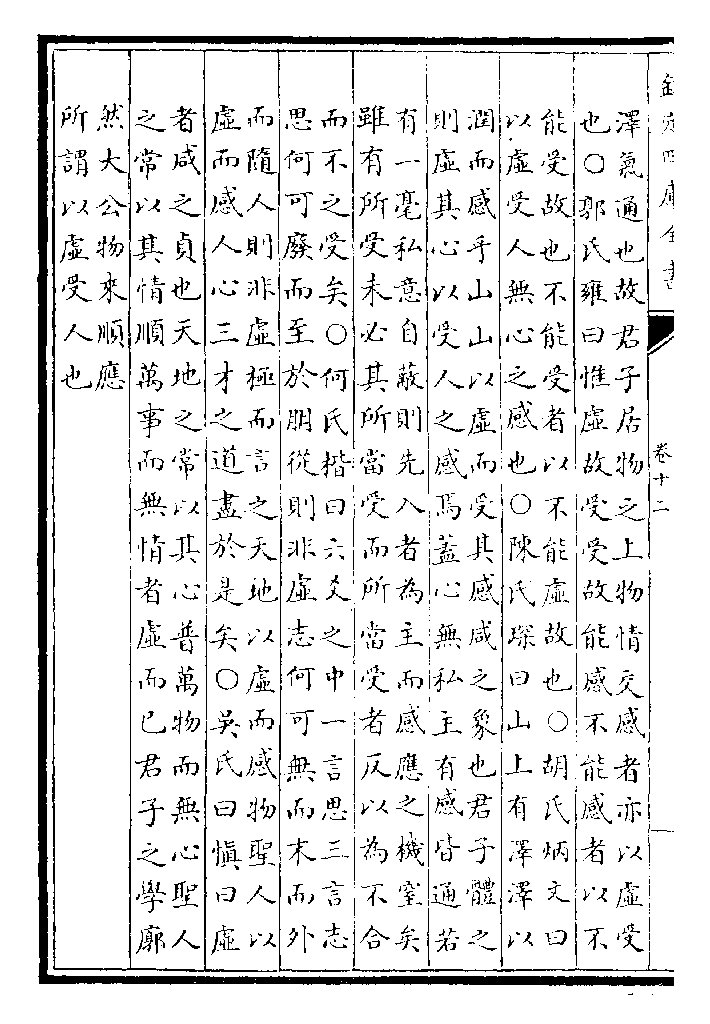 欽定四庫全書
卷十二
澤氣通也故君子居物之上物情交感者亦以虛受
也○郭氏雍曰惟虛故受受故能感不能感者以不
能受故也不能受者以不能虛故也○胡氏炳文曰
以虛受人無心之感也○陳氏琛曰山上有澤澤以
潤而感乎山山以虛而受其感咸之象也君子體之
則虛其心以受人之感焉蓋心無私主有感皆通若
有一毫私意自蔽則先入者為主而感應之機窒矣
雖有所受未必其所當受而所當受者反以為不合
而不之受矣○何氏楷曰六爻之中一言思三言志
思何可廢而至於朋從則非虛志何可無而末而外
而隨人則非虛極而言之天地以虛而感物聖人以
虛而感人心三才之道盡於是矣○吳氏曰慎曰虛
者咸之貞也天地之常以其心普萬物而無心聖人
之常以其情順萬事而無情者虛而已君子之學廓
然大公物來順應
所謂以虛受人也